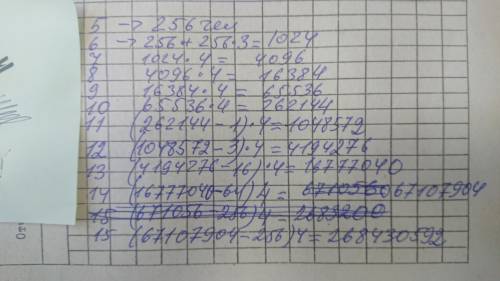 5 → 256 чел
6 → 256 + 256·3 = 1024
7 1024·4 = 4096
8 4096·4 = 16384
9 16384·4 = 65536
10 65536·4 = 262144
11 (262144-1)·4 = 1048572
12 (1048572-3)·4 = 4194276
13 (4194276-16)·4 = 16777040
14 (16777040-64)4 = 67107904
15 (671056-256)4 = 2683200
15 (67107904-256)4 = 268430592